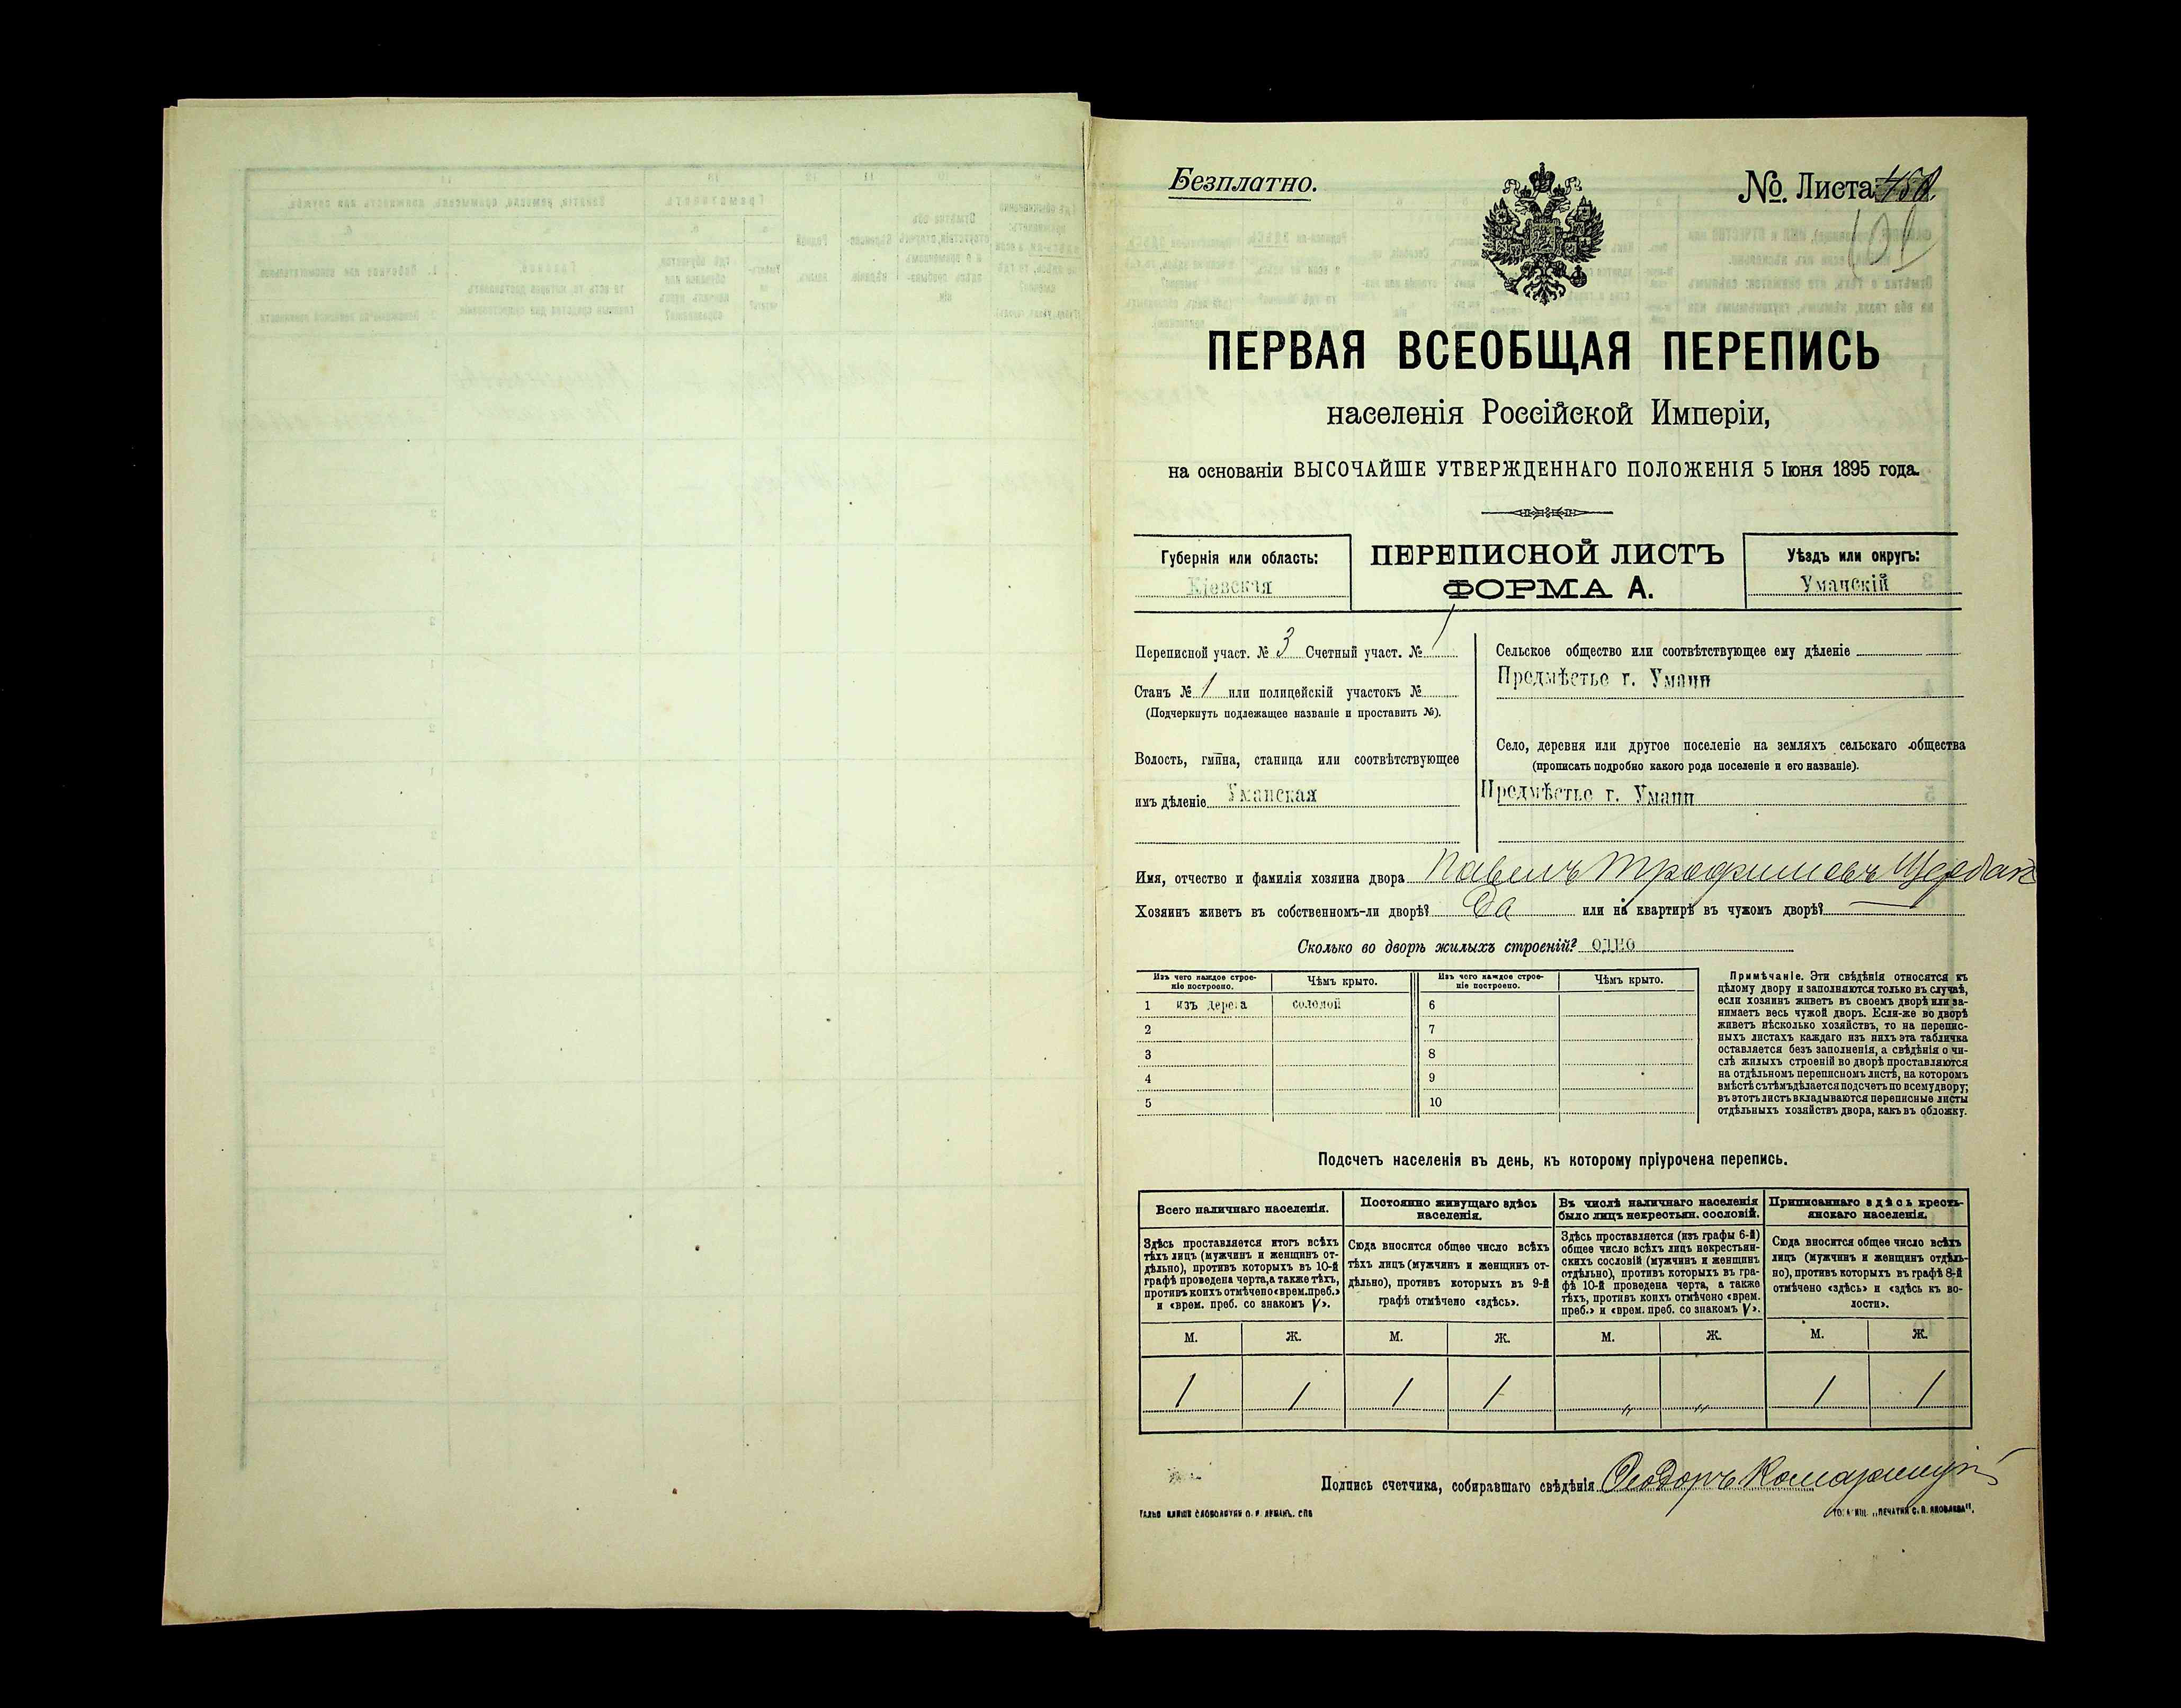 Безплатно.
№. Листа
101
ПЕРВАЯ ВСЕОБЩАЯ ПЕРЕПИСЬ
населенія Россійской Имперіи,
на основаніи ВЫСОЧАЙШЕ УТВЕРЖДЕННАГО ПОЛОЖЕНІЯ 5 Іюня 1895 года.
Губернія или область:
Кіевская
ПЕРЕПИСНОЙ ЛИСТЪ
ФОРМА А.
Уѣздъ или округъ:
Уманскій
Переписной участ. № 3 Счетный участ. № 1
Станъ № 1 или полицейскій участокъ №
(Подчеркнуть подлежащее названіе и проставить №).
Волость, гмина, станица или соотвѣтствующее
имъ дѣленіе Уманская
Сельское общество или соотвѣтствующее ему дѣленіе
Предмѣстье г. Умани
Село, деревня или другое поселеніе на земляхъ сельскаго общества
(прописать подробно какого рода поселеніе и его названіе).
Предмѣстье г. Умани
Имя, отчество и фамилія хозяина двора Павелъ Трофимовъ Щербак
Хозяинъ живетъ въ собственномъ-ли дворѣ? Да или на квартирѣ въ чужомъ дворѣ? —
Сколько во дворѣ жилыхъ строеній? одно
Изъ чего каждое строе-
ніе построено.
Чѣмъ крыто.
Изъ чего каждое строе-
ніе построено.
Чѣмъ крыто.
1 изъ дерева соломой 6
2 7
3 8
4 9
5 10
Примѣчаніе. Эти свѣдѣнія относятся къ
цѣлому двору и заполняются только въ случаѣ,
если хозяинъ живетъ въ своемъ дворѣ или за-
нимаетъ весь чужой дворъ. Если-же во дворѣ
живетъ нѣсколько хозяйствъ, то на перепис-
ныхъ листахъ каждаго изъ нихъ эта табличка
оставляется безъ заполненія, а свѣдѣнія о чи-
слѣ жилыхъ строеній во дворѣ проставляются
на отдѣльномъ переписномъ листѣ, на которомъ
вмѣстѣ съ тѣмъ дѣлается подсчетъ по всему двору;
въ этотъ листъ вкладываются переписные листы
отдѣльныхъ хозяйствъ двора, какъ въ обложку.
Подсчетъ населенія въ день, къ которому пріурочена перепись.
Всего наличнаго населенія.
Здѣсь проставляется итогъ всѣхъ
тѣхъ лицъ (мужчинъ и женщинъ от-
дѣльно), противъ которыхъ въ 10-й
графѣ проведена черта, а также тѣхъ,
противъ коихъ отмѣчено «врем. преб.»
и «врем. преб. со знакомъ V».
Постоянно живущаго здѣсь
населенія.
Сюда вносится общее число всѣхъ
тѣхъ лицъ (мужчинъ и женщинъ от-
дѣльно), противъ которыхъ въ 9-й
графѣ отмѣчено «здѣсь».
Въ числѣ наличнаго населенія
было лицъ некрестьян. сословій.
Здѣсь проставляется (изъ графы 6-й)
общее число всѣхъ лицъ некрестьян-
скихъ сословій (мужчинъ и женщинъ
отдѣльно), противъ которыхъ въ гра-
фѣ 10-й проведена черта, а также
тѣхъ, противъ коихъ отмѣчено «врем.
преб.» и «врем. преб. со знакомъ V».
Приписаннаго здѣсь кресть-
янскаго населенія.
Сюда вносится общее число всѣхъ
лицъ (мужчинъ и женщинъ отдѣль-
но), противъ которыхъ въ графѣ 8-й
отмѣчено «здѣсь» и «здѣсь къ во-
лости».
М. Ж. М. Ж. М. Ж. М. Ж.
1 1 1 1 " " 1 1
Подпись счетчика, собиравшаго свѣдѣнія Ѳеодоръ